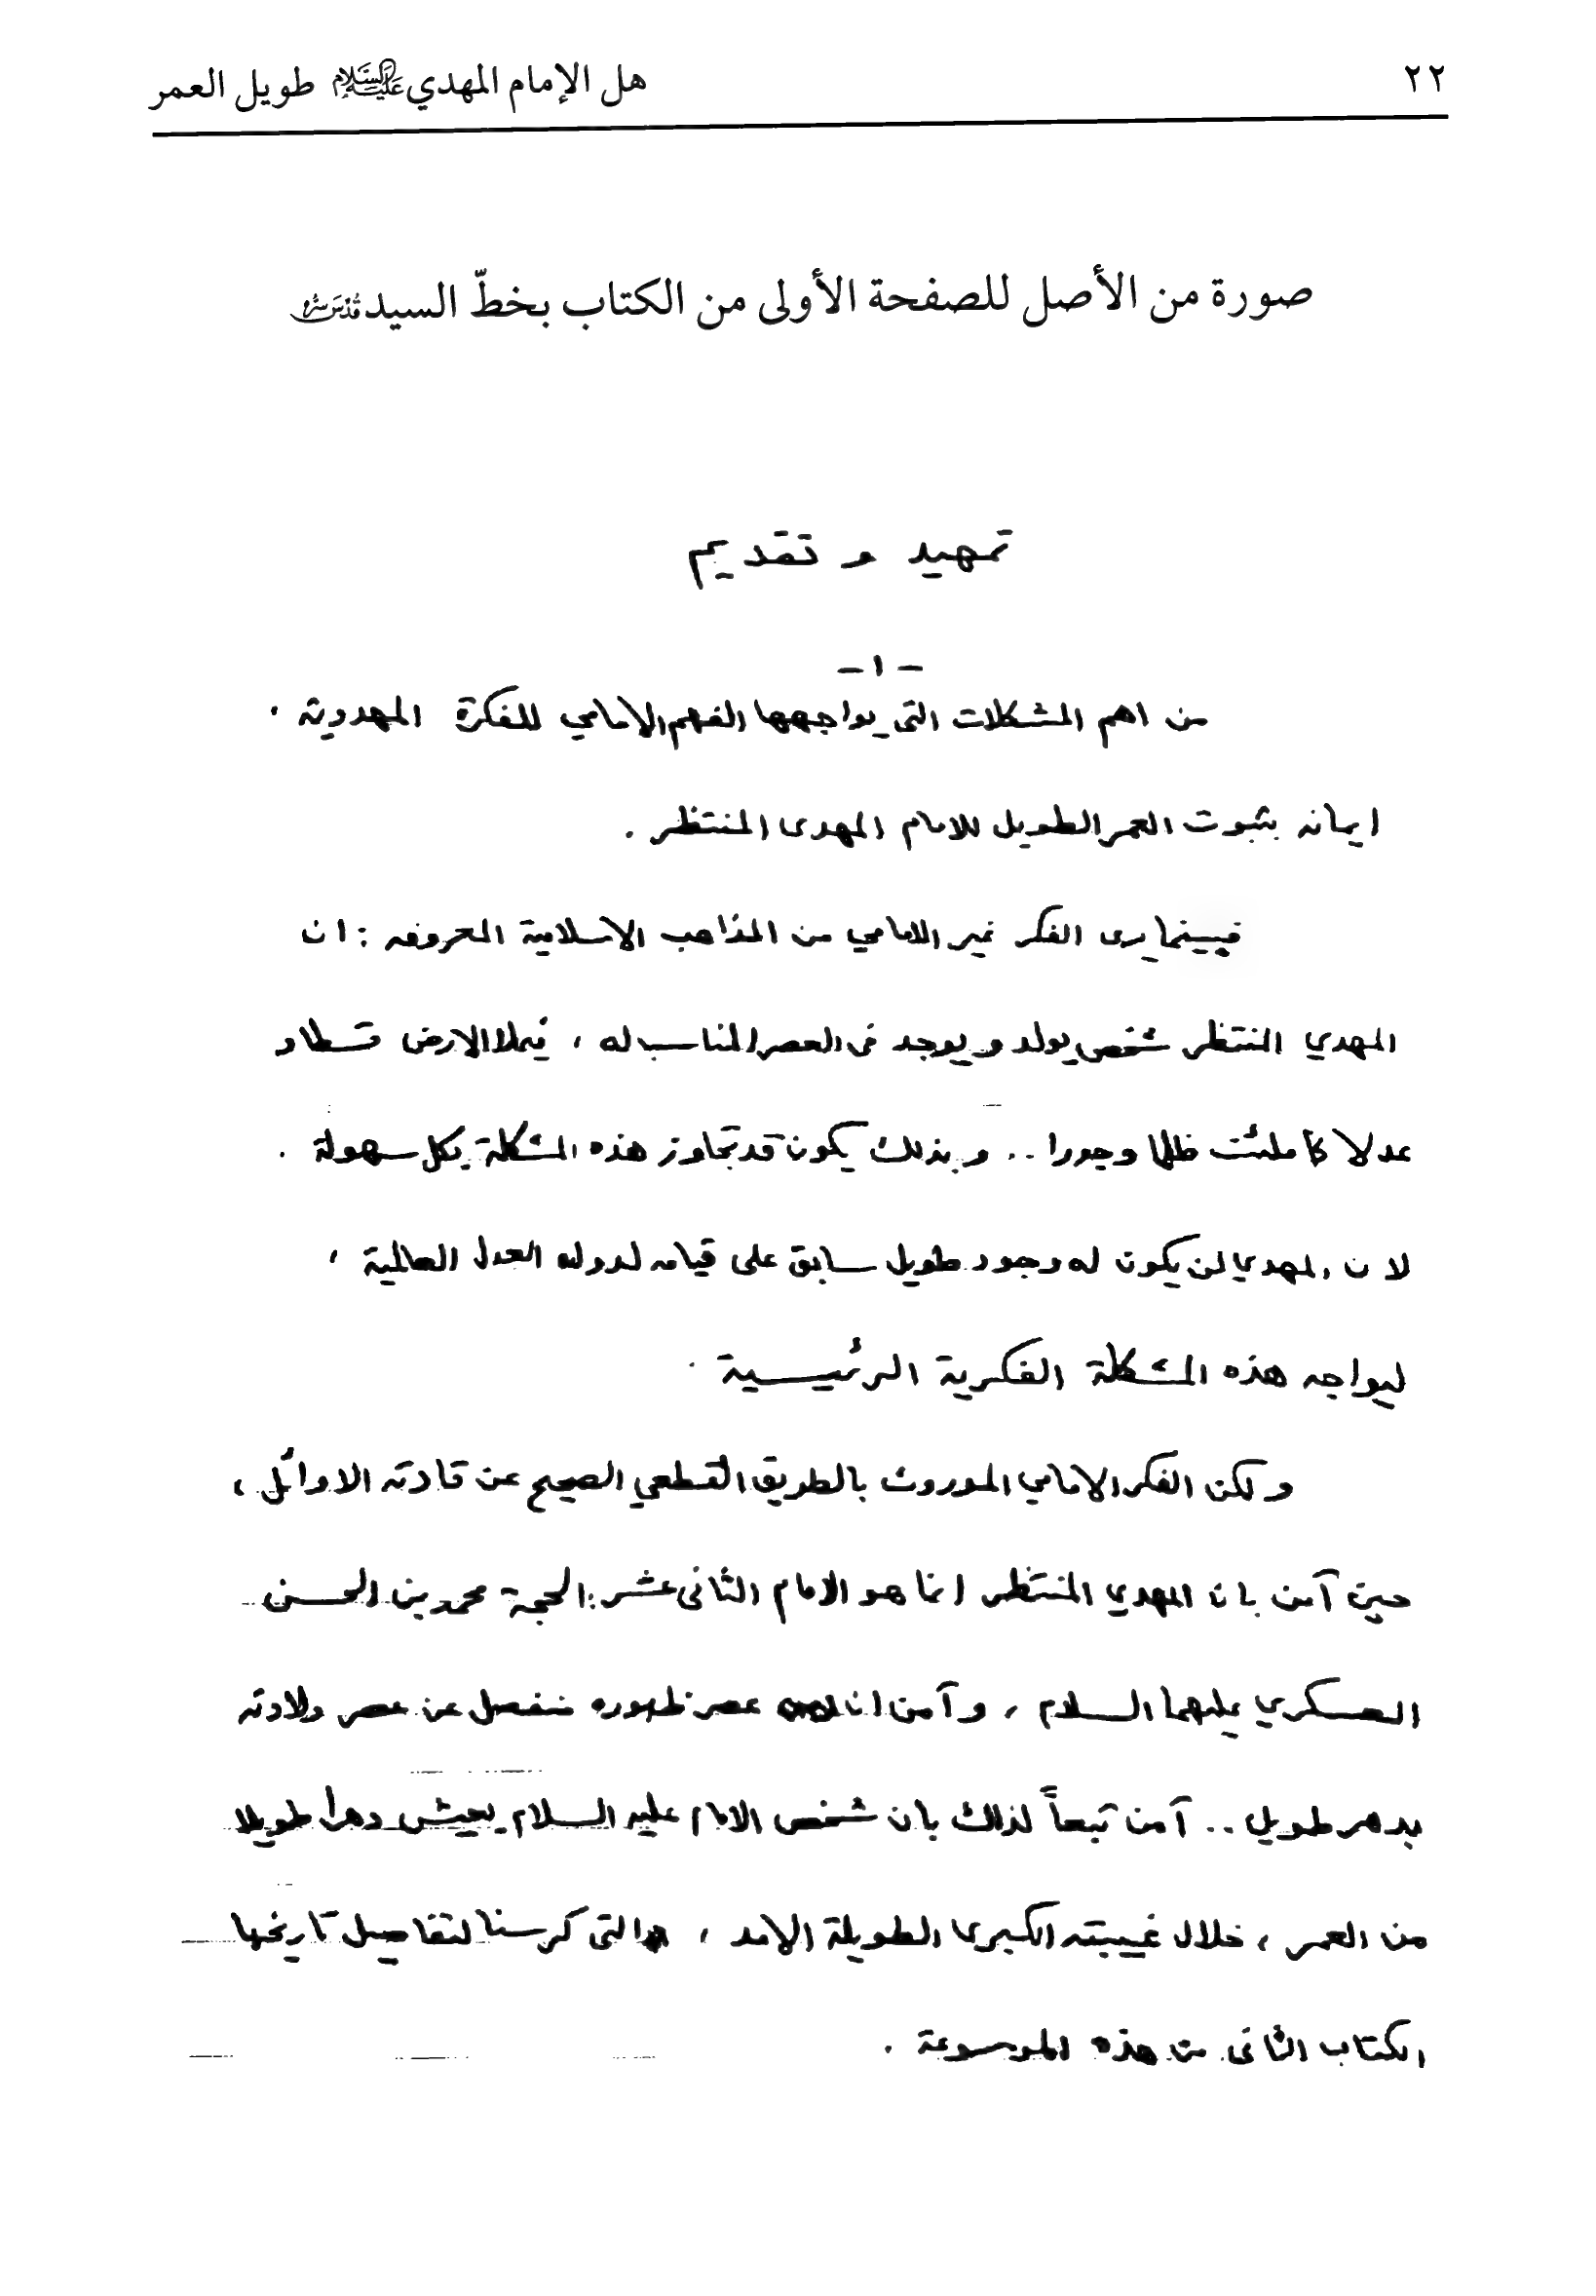 ٢٢
هل الإمام المهدي عليه السلام طويل العمر
صورة من الأصل للصفحة الأولى من الكتاب بخطّ السيد قدس سره
تمهيد و تقديم
- ١ -
من اهم المشكلات التي يواجهها الفهم الامامي للفكرة المهدوية ،
ايمانه بثبوت العمر الطويل للامام المهدى المنتظر .
فبينما يرى الفكر غير الامامي من المذاهب الاسلامية المعروفه : ان
المهدي المنتظر شخص يولد و يوجد في العصر المناسب له ، فيملا الارض قسطا و
عدلا كما ملئت ظلما وجورا .. و بذلك يكون قد تجاوز هذه المشكلة بكل سهولة .
لان المهدي لن يكون له وجود طويل سابق على قيامه لدوله العدل العالمية ،
ليواجه هذه المشكلة الفكرية الرئيسية .
و لكن الفكر الامامي الموروث بالطريق القطعي الصحيح عن قادته الاوائل ،
حين آمن بان المهدي المنتظر انما هو الامام الثانى عشر : الحجة محمد بن الحسن
العسكري عليهما السلام ، و آمن ان عصر ظهوره منفصل عن عصر ولادته
بدهر طويل .. آمن تبعاً لذلك بان شخص الامام عليه السلام يعيش دهرا طويلا
من العمر ، خلال غيبته الكبرى الطويلة الامد ، والتى كرسنا لتفاصيل تاريخها
الكتاب الثانى من هذه الموسوعة .